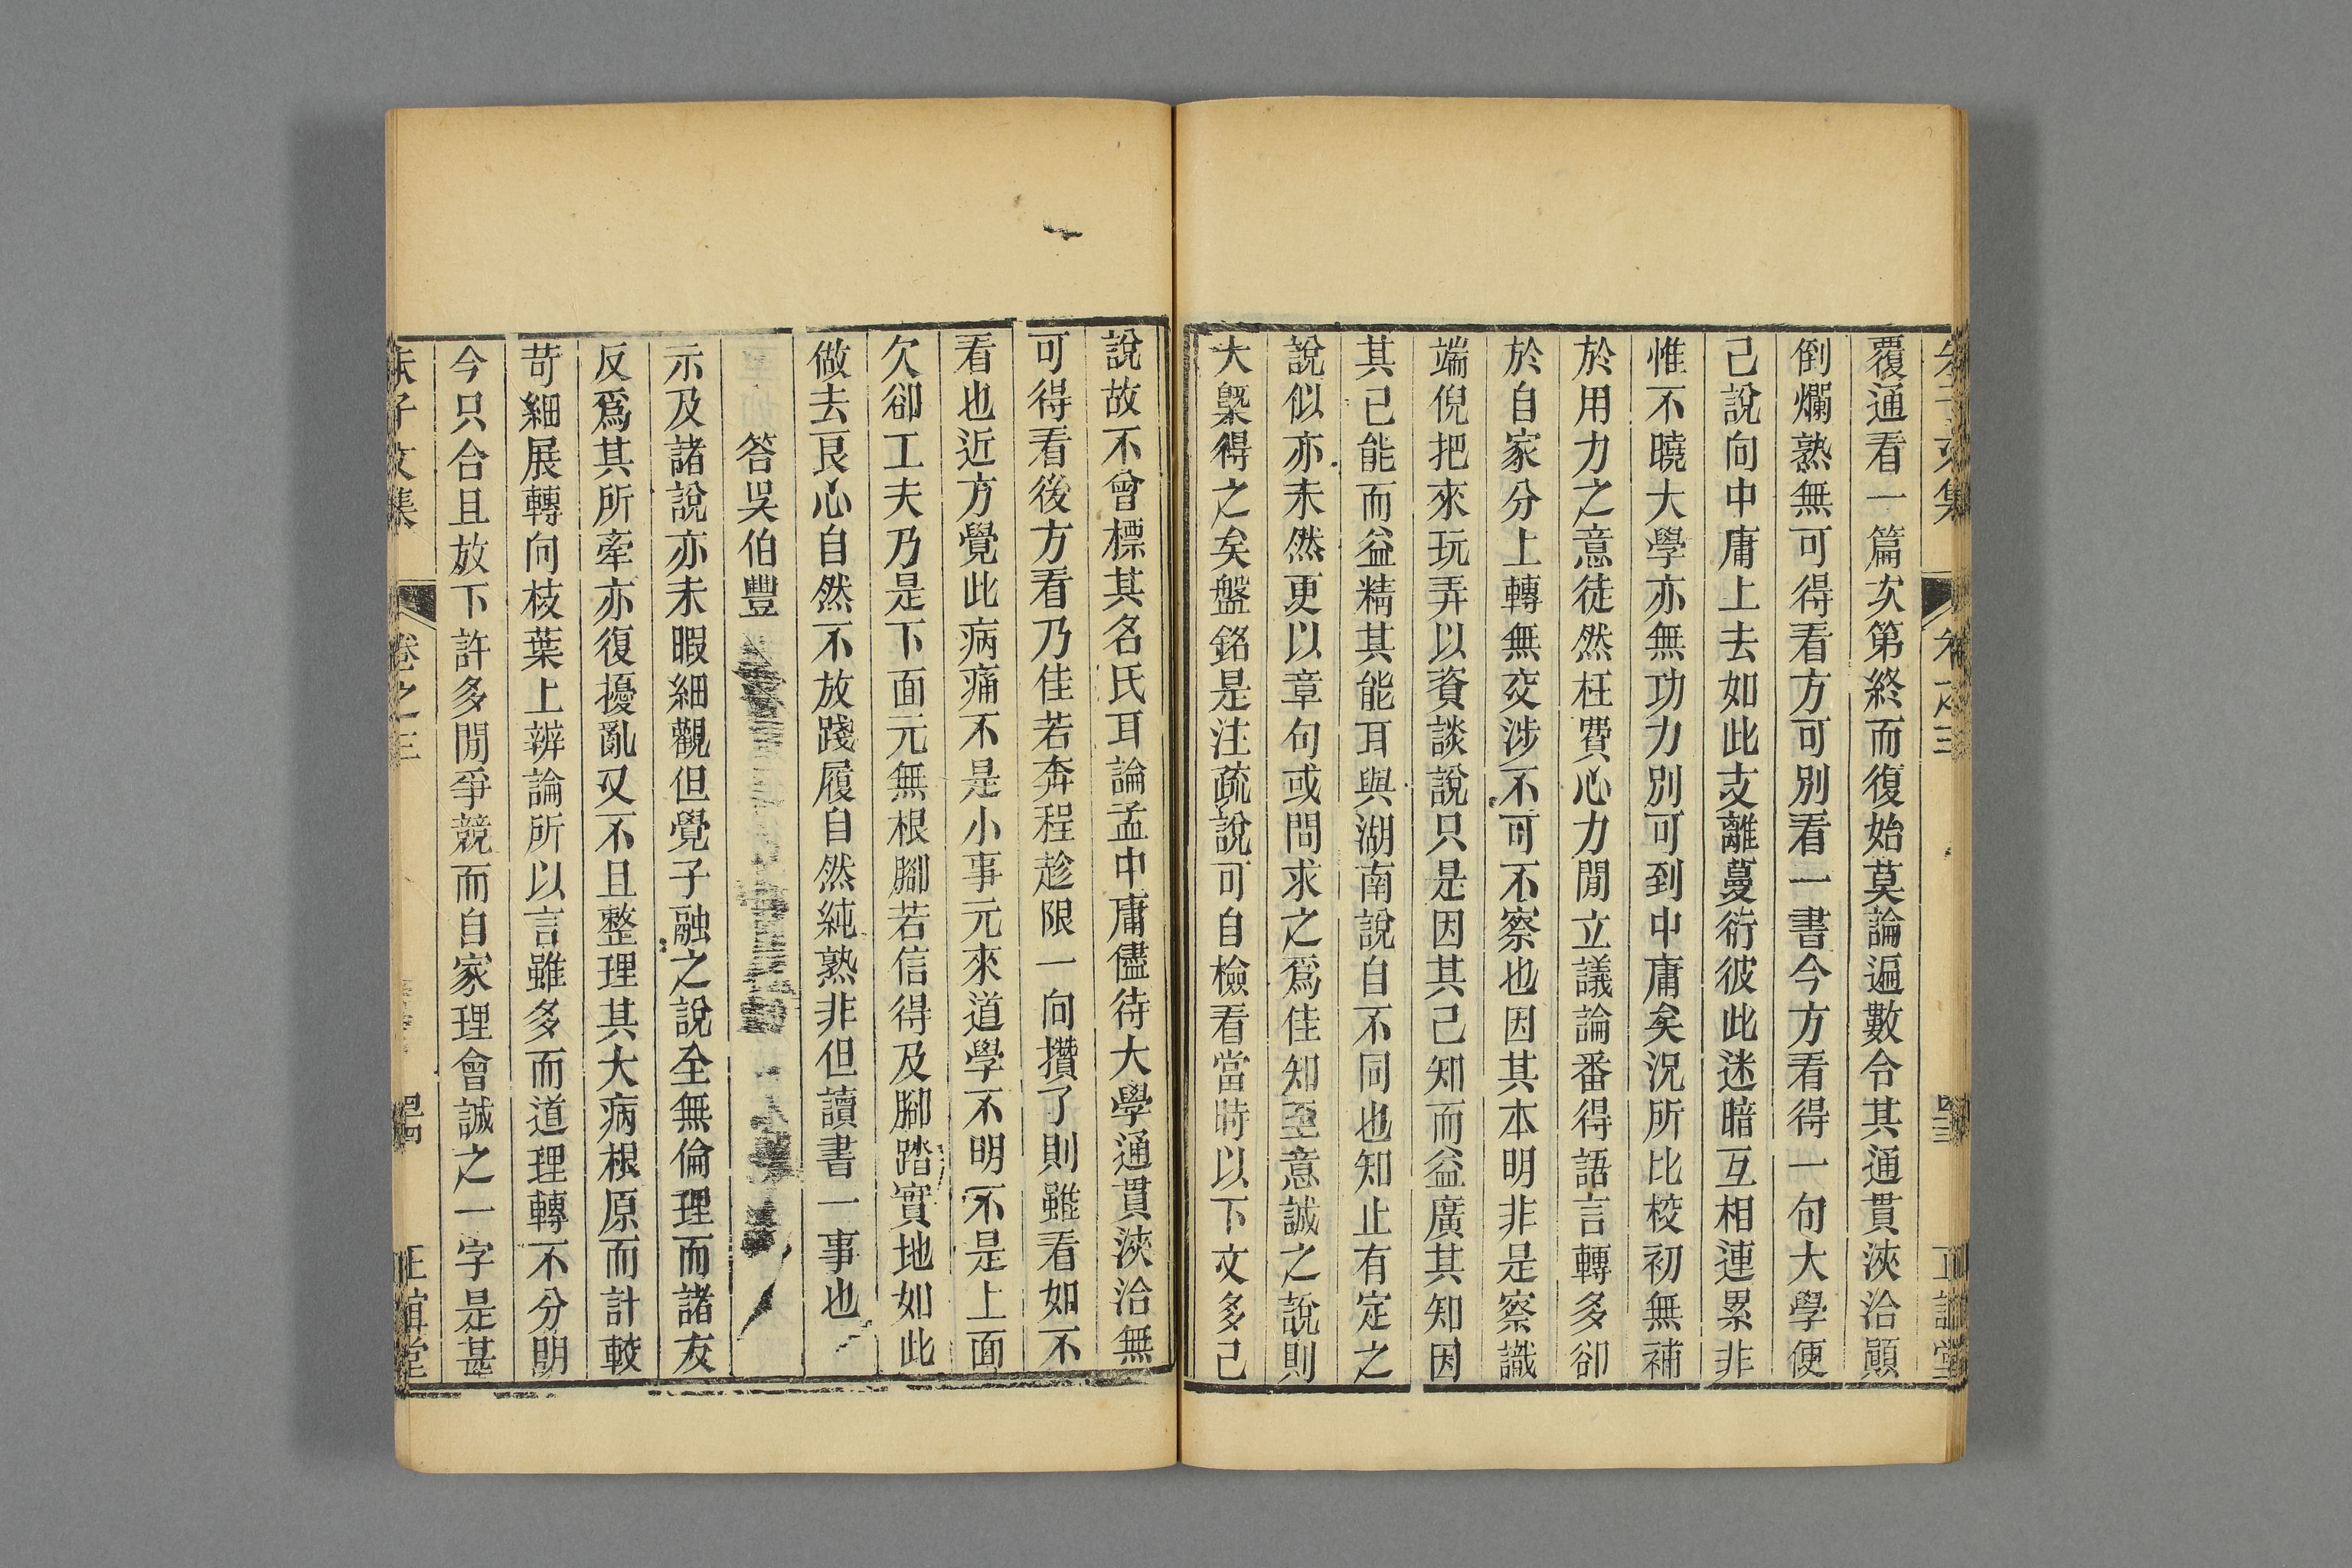 覆通看一篇次第終而復始莫論遍數令其通貫浹洽顚
倒爛熟無可得看方可別看一書今方看得一句大學便
己說向中庸上去如此支離蔓衍彼此迷暗互相連累非
惟不曉大學亦無功力別可到中庸矣況所比校初無補
於用力之意徒然枉費心力閒立議論番得語言轉多卻
於自家分上轉無交涉不可不察也因其本明非是察識
端倪把來玩弄以資談說只是因其已知而益廣其知因
其已能而益精其能耳與湖南說自不同也知止有定之
說似亦未然更以章句或問求之爲佳知至意誠之說則
大槩得之矣盤銘是注疏說可自檢看當時以下文多己
說故不曾標其名氏耳論孟中庸儘待大學通貫浹洽無
可得看後方看乃佳若奔程趁限一向攢了則雖看如不
看也近方覺此病痛不是小事元來道學不明不是上面
欠卻工夫乃是下面元無根腳若信得及腳踏實地如此
做去良心自然不放踐履自然純熟非但讀書一事也
答吳伯豐
示及諸說亦未暇細觀但覺子融之說全無倫理而諸友
反爲其所牽亦復擾亂又不且整理其大病根原而計較
苛細展轉向枝葉上辨論所以言雖多而道理轉不分明
今只合且放下許多閒爭競而自家理會誠之一字是甚
朱子文集 卷之三 正誼堂